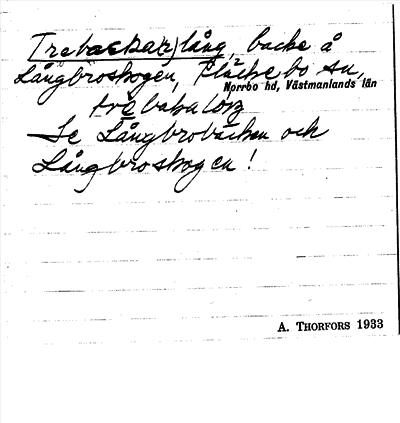 Trebacka(r)lång, backe å
Långbroskogen, Fläckebo sn,
Norrbo hd, Västmanlands län
trebakalåŋ
Se Långbrobacken och
Långbroskogen!
A. THORFORS 1933